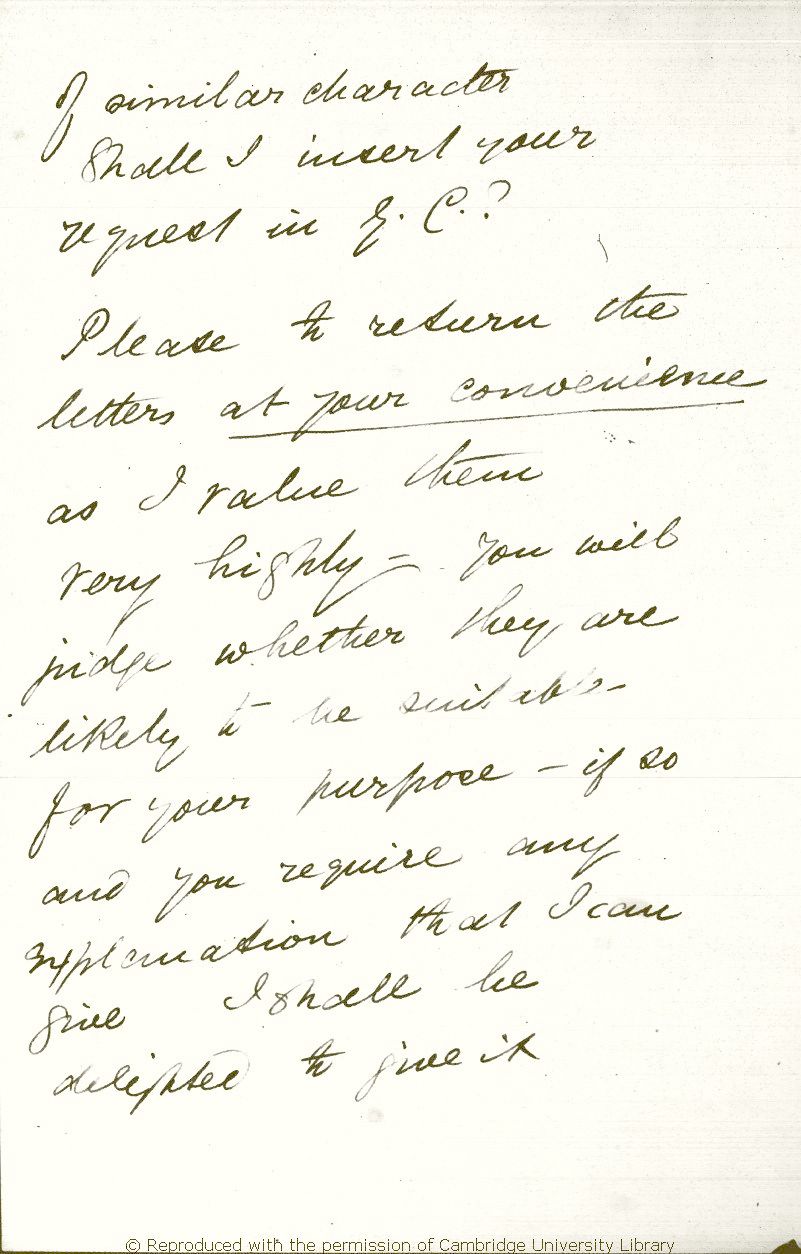 of similar character
Shall I insert your
request in G. C.?
Please to return the
letters at your convenience
as I value them
very highly – You will
judge whether they are
likely to be suitable
for your purpose – if so
and you require any
explanation that I can
give I shall be
delighted to give it
© Reproduced with the permission of Cambridge University Library